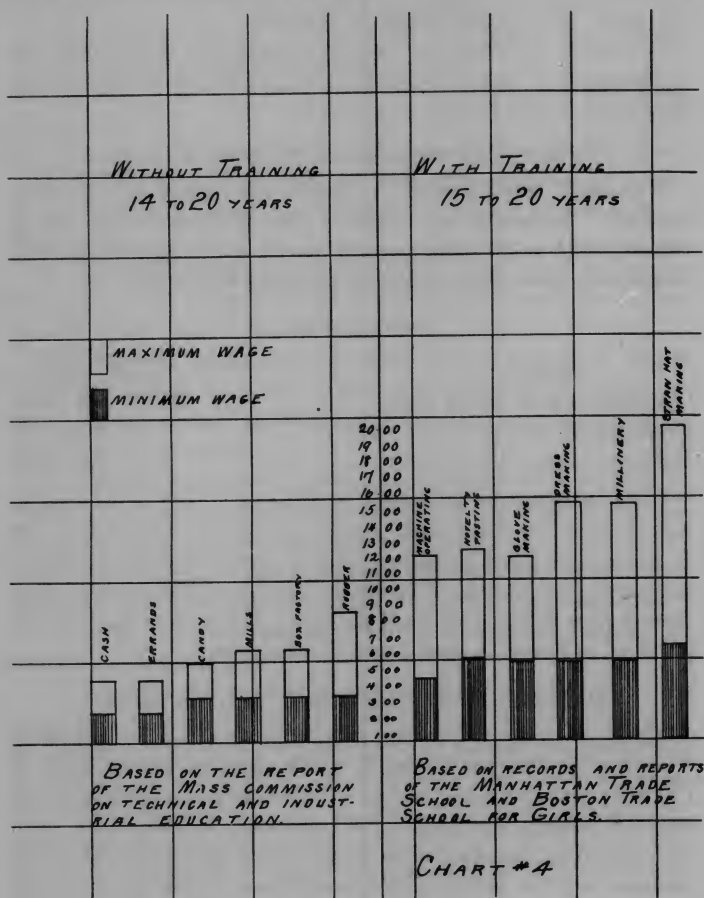 WITHOUT TRAINING
14 TO 20 YEARS
WITH TRAINING
15 TO 20 YEARS
MAXIMUM WAGE
MINIMUM WAGE
20 00
19 00
18 00
17 00
16 00
15 00
14 00
13 00
12 00
11 00
10 00
9 00
8 00
7 00
6 00
5 00
4 00
3 00
2 00
1 00
CASH
ERRANDS
CANDY
MILLS
BOX FACTORY
RUBBER
MACHINE
OPERATING
NOVELTY
PASTING
GLOVE
MAKING
DRESS
MAKING
MILLINERY
STRAW HAT
MAKING
BASED ON THE REPORT
OF THE MASS COMMISSION
ON TECHNICAL AND INDUST-
RIAL EDUCATION.
BASED ON RECORDS AND REPORTS
OF THE MANHATTAN TRADE
SCHOOL AND BOSTON TRADE
SCHOOL FOR GIRLS.
CHART #4